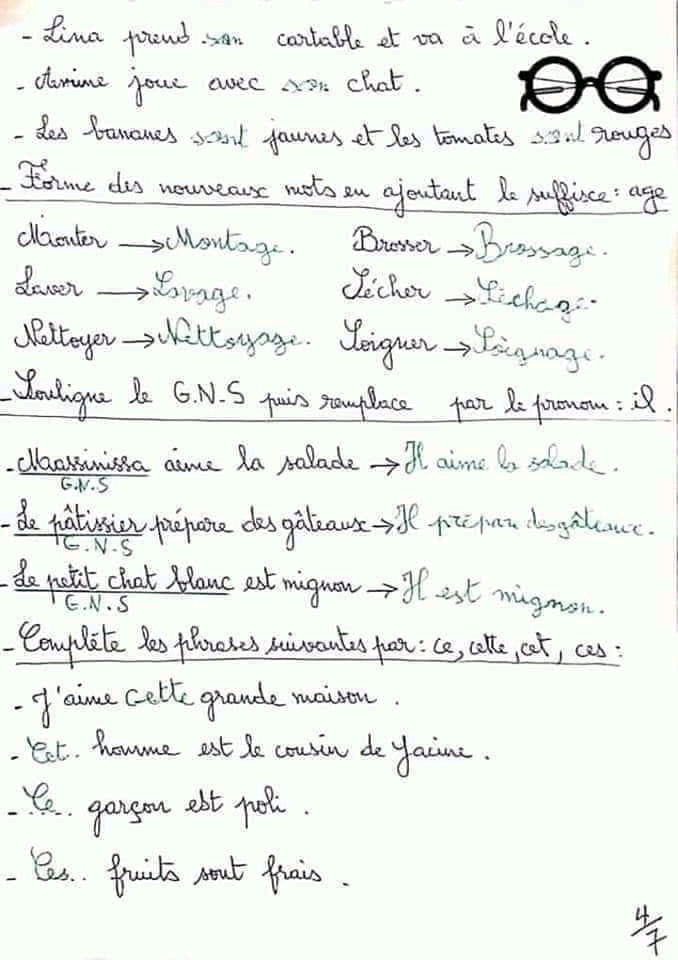 - Lina prend son cartable et va à l'école.
- Amine joue avec son chat.
- Les bananes sont jaunes et les tomates sont rouges
- Forme des nouveaux mots en ajoutant le suffixe : age
Monter → Montage. Brosser → Brossage.
Laver → Lavage. Lécher → Léchage.
Nettoyer → Nettoyage. Soigner → Soignage.
- Souligne le G.N.S puis remplace par le pronom : il.
- Maassinissa aime la salade → Il aime la salade.
G.N.S
- Le pâtissier prépare des gâteaux → Il prépare des gâteaux.
G.N.S
- Le petit chat blanc est mignon → Il est mignon.
G.N.S
- Complète les phrases suivantes par : ce, cette, cet, ces :
- J'aime cette grande maison.
- Cet.. homme est le cousin de Yacine.
- Ce.. garçon est poli.
- Ces.. fruits sont frais.
4/7